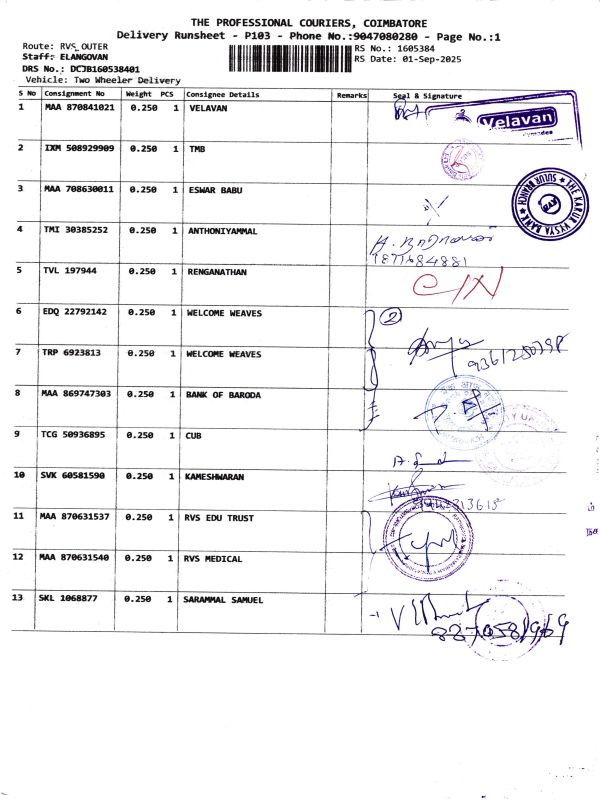 THE PROFESSIONAL COURIERS, COIMBATORE
Delivery Runsheet - P103 - Phone No.:9047080280 - Page No.:1
Route: RVS_OUTER RS No.: 1605384
Staff: ELANGOVAN RS Date: 01-Sep-2025
DRS No.: DCJB160538401
Vehicle: Two Wheeler Delivery
S No Consignment No Weight PCS Consignee Details Remarks Seal & Signature
1 MAA 870841021 0.250 1 VELAVAN Velavan
2 IXM 508929909 0.250 1 TMB
3 MAA 708630011 0.250 1 ESWAR BABU THE KARUR VYSYA BANK SULUR BRANCH
4 TMI 30385252 0.250 1 ANTHONIYAMMAL
5 TVL 197944 0.250 1 RENGANATHAN
6 EDQ 22792142 0.250 1 WELCOME WEAVES 2
7 TRP 6923813 0.250 1 WELCOME WEAVES
8 MAA 869747303 0.250 1 BANK OF BARODA
9 TCG 50936895 0.250 1 CUB
10 SVK 60581590 0.250 1 KAMESHWARAN
11 MAA 870631537 0.250 1 RVS EDU TRUST
12 MAA 870631540 0.250 1 RVS MEDICAL
13 SKL 1068877 0.250 1 SARAMMAL SAMUEL